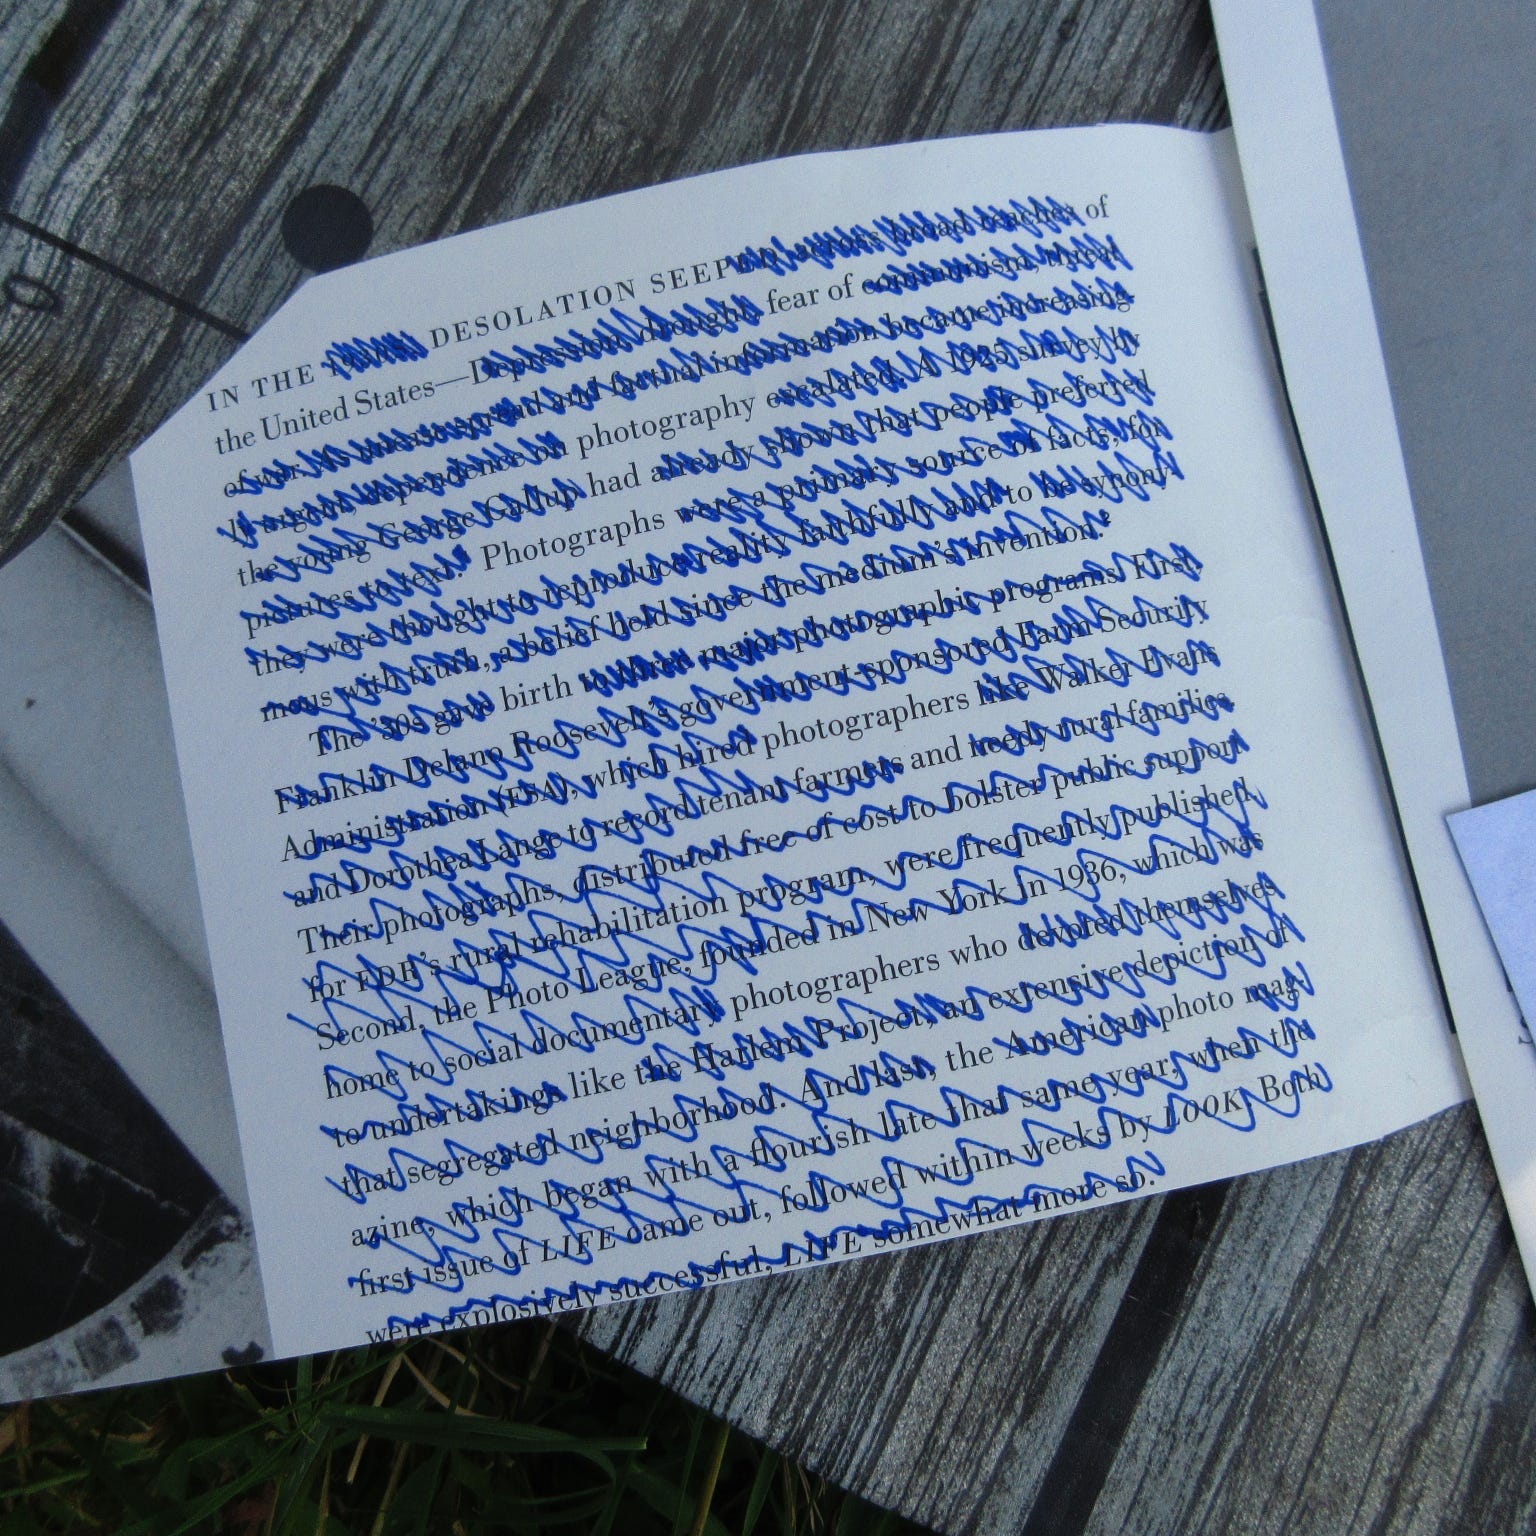 IN THE 1930s, DESOLATION SEEPED across broad reaches of
the United States—Depression, drought, fear of communism, threat
of war. As unease spread and factual information became increasing-
ly urgent, dependence on photography escalated. A 1925 survey by
the young George Gallup had already shown that people preferred
pictures to text. Photographs were a primary source of facts, for
they were thought to reproduce reality faithfully and to be synony-
mous with truth, a belief held since the medium's invention.²
The '30s gave birth to three major photographic programs. First
Franklin Delano Roosevelt's government-sponsored Farm Security
Administration (FSA), which hired photographers like Walker Evans
and Dorothea Lange to record tenant farmers and needy rural families.
Their photographs, distributed free of cost to bolster public support
for FDR's rural rehabilitation program, were frequently published.
Second, the Photo League, founded in New York in 1936, which was
home to social documentary photographers who devoted themselves
to undertakings like the Harlem Project, an extensive depiction of
that segregated neighborhood. And last, the American photo mag-
azine, which began with a flourish late that same year, when the
first issue of LIFE came out, followed within weeks by LOOK. Both
were explosively successful, LIFE somewhat more so.